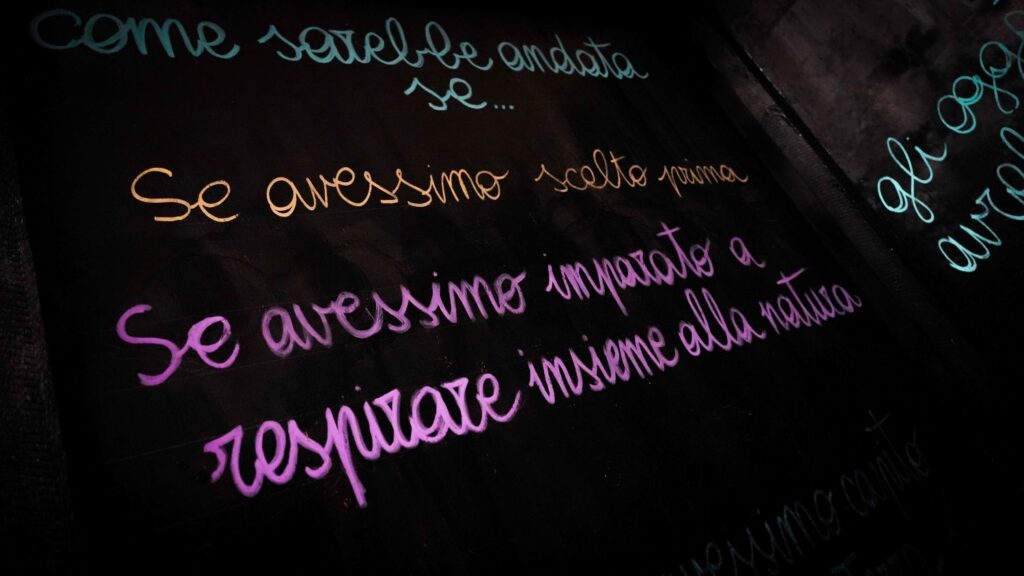 come sarebbe andata
se...
Se avessimo scelto prima
Se avessimo imparato a
respirare insieme alla natura
gli
capito